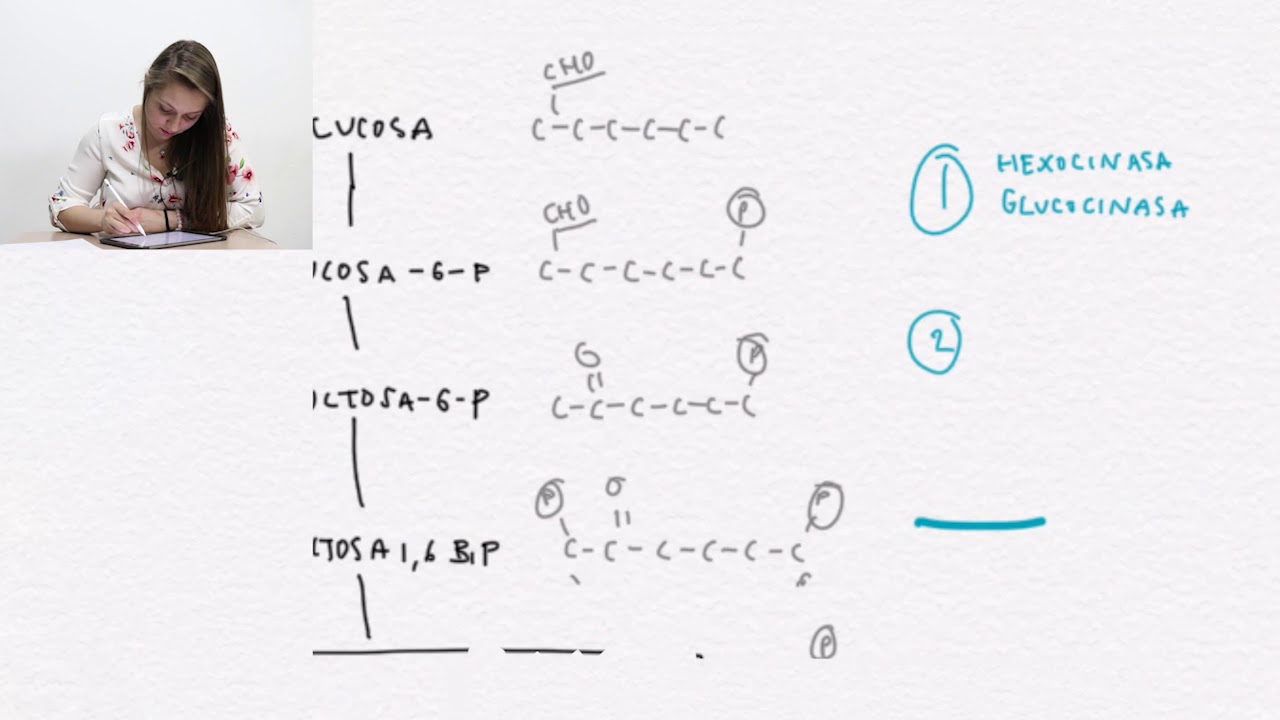 CHO
LUCOSA
C-C-C-C-C-C
1 HEXOCINASA
GLUCOCINASA
CHO P
UCOSA-6-P
C-C-C-C-C-C
O P
2
UCTOSA-6-P
C-C-C-C-C-C
P O P
CTOSA 1,6 BiP
C-C-C-C-C-C
6
P